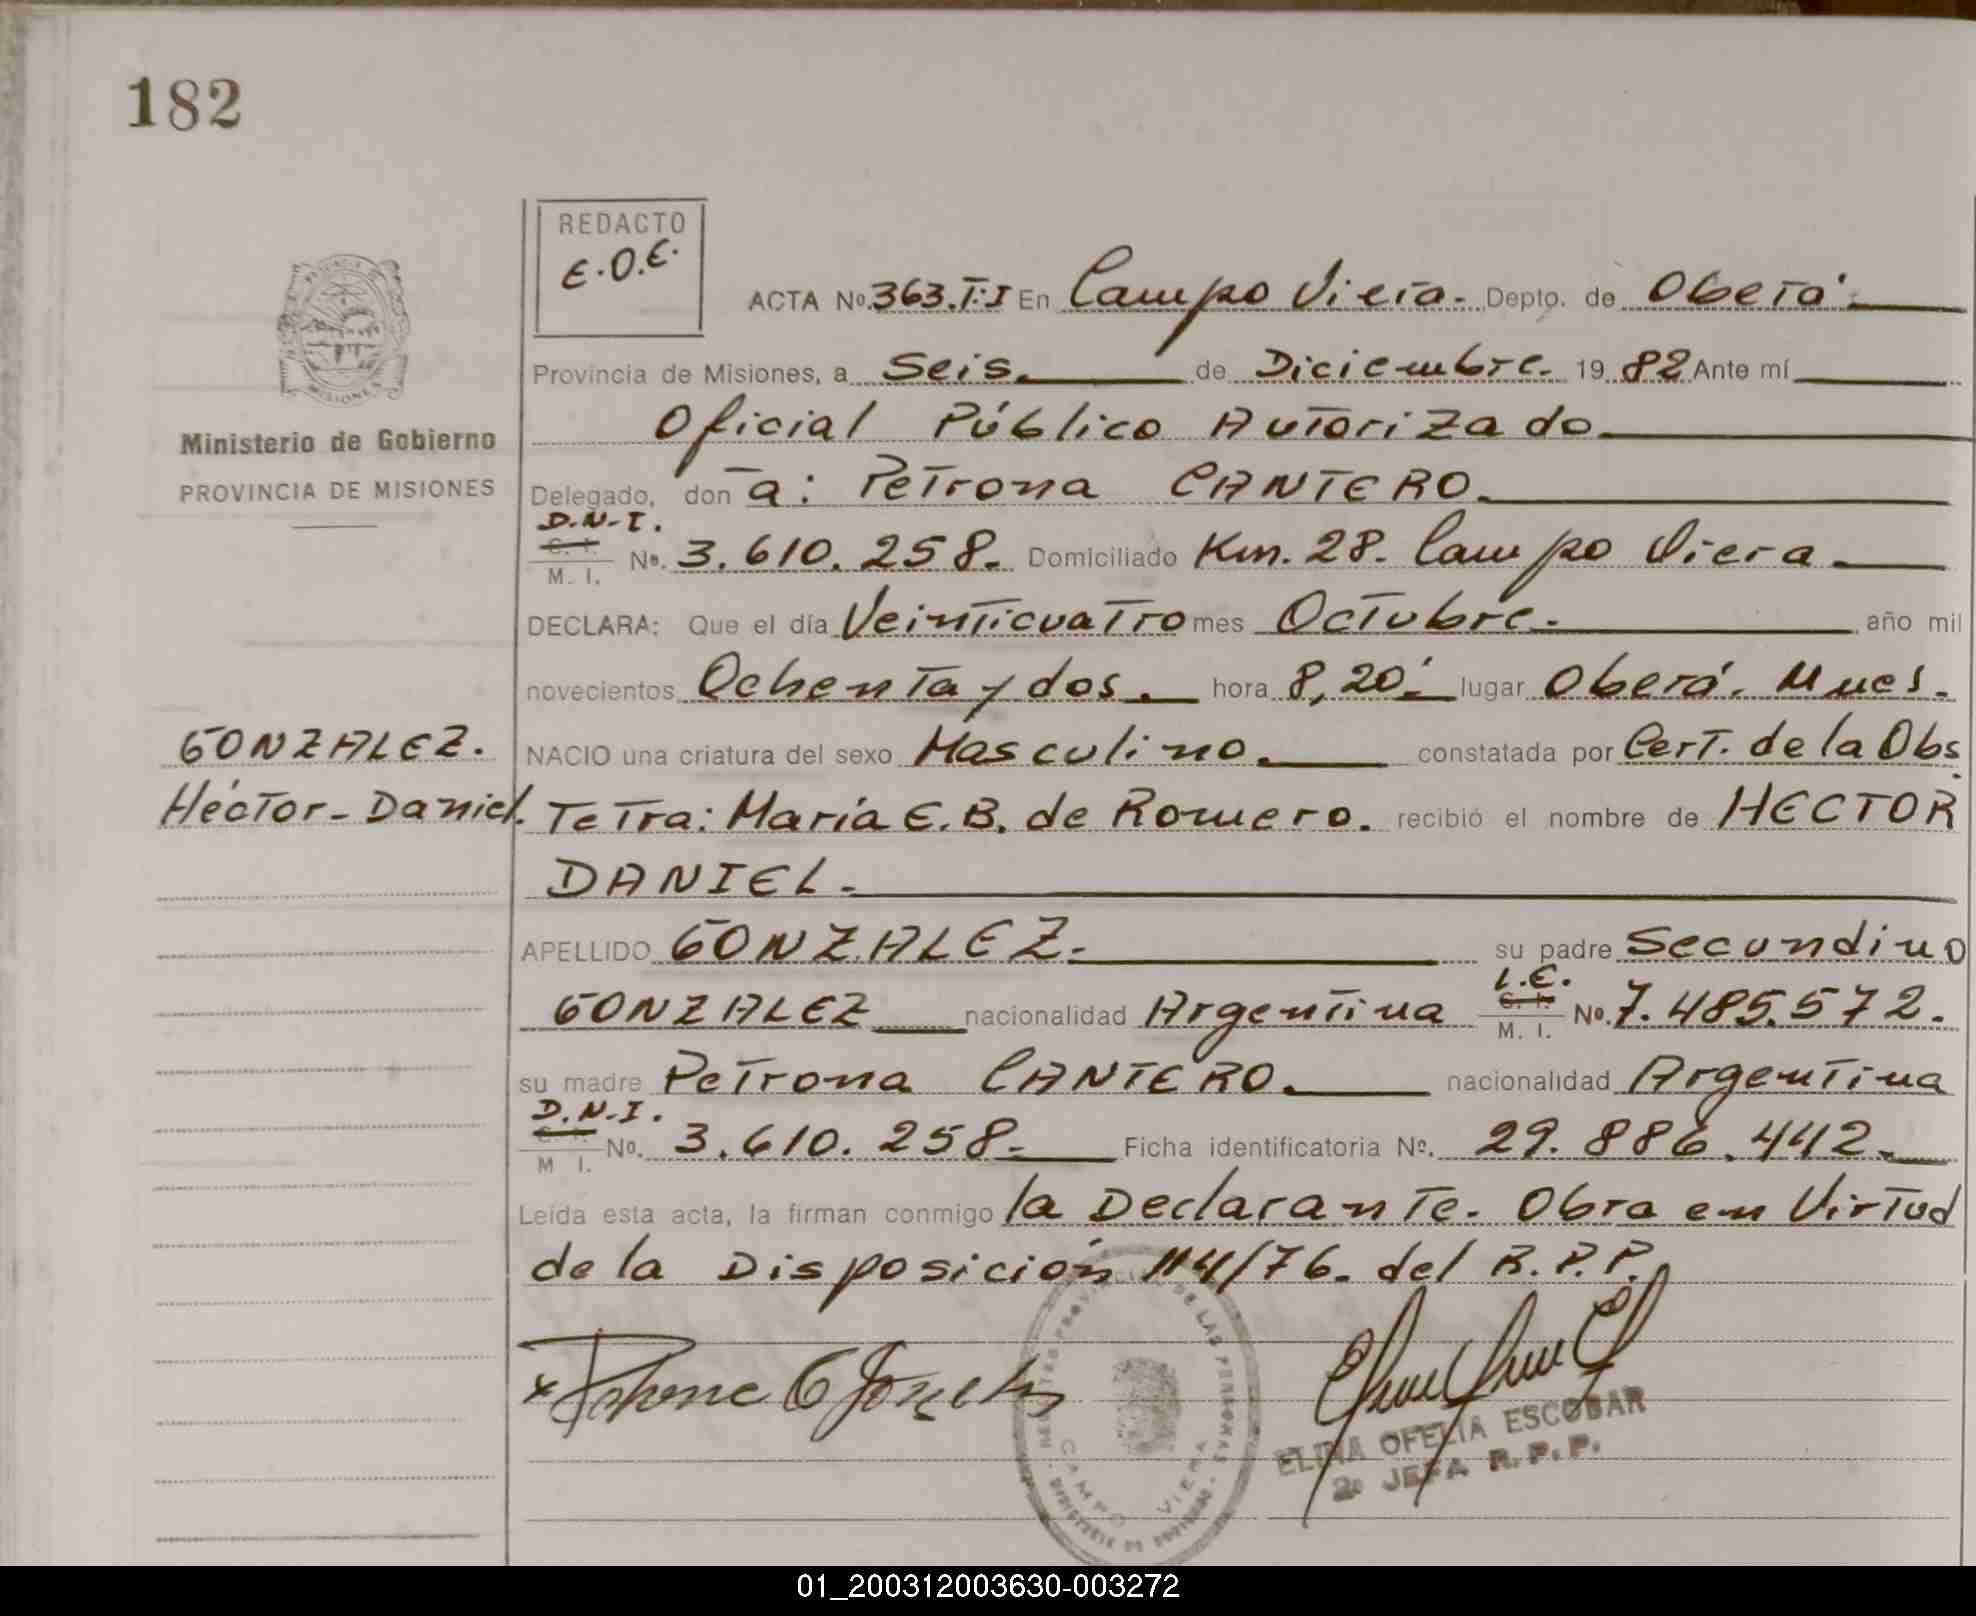 182
REDACTO
E.O.E.
ACTA Nº. 363. T: I En Campo Viera. Depto. de Oberá
Provincia de Misiones, a Seis. de Diciembre. 19 82 Ante mí
Oficial Público Autorizado
Delegado, don a: Petrona CANTERO.
D.N.I.
C. I. Nº. 3.610.258. Domiciliado Km. 28. Campo Viera
M. I.
DECLARA: Que el día Veinticuatro mes Octubre. año mil
novecientos Ochenta y dos. hora 8,20' lugar Oberá. Mnes.
NACIO una criatura del sexo Masculino. constatada por Cert. de la Obs
Tetra: María E. B. de Romero. recibió el nombre de HECTOR
DANIEL.
APELLIDO GONZALEZ. su padre Secundino
L.E.
GONZALEZ nacionalidad Argentina C. I. Nº. 7.485.572.
M. I.
su madre Petrona CANTERO. nacionalidad Argentina
D.N.I.
C. I. Nº. 3.610.258. Ficha identificatoria Nº. 29.886.442.
M I.
Leída esta acta, la firman conmigo la Declarante. Obra en Virtud
de la Disposición 114/76. del R.P.P.
ELINA OFELIA ESCOBAR
2º JEFA R.P.P.
CAMPO VIERA
PROVINCIA DE
MISIONES
Ministerio de Gobierno
PROVINCIA DE MISIONES
GONZALEZ.
Héctor-Daniel.
01_200312003630-003272